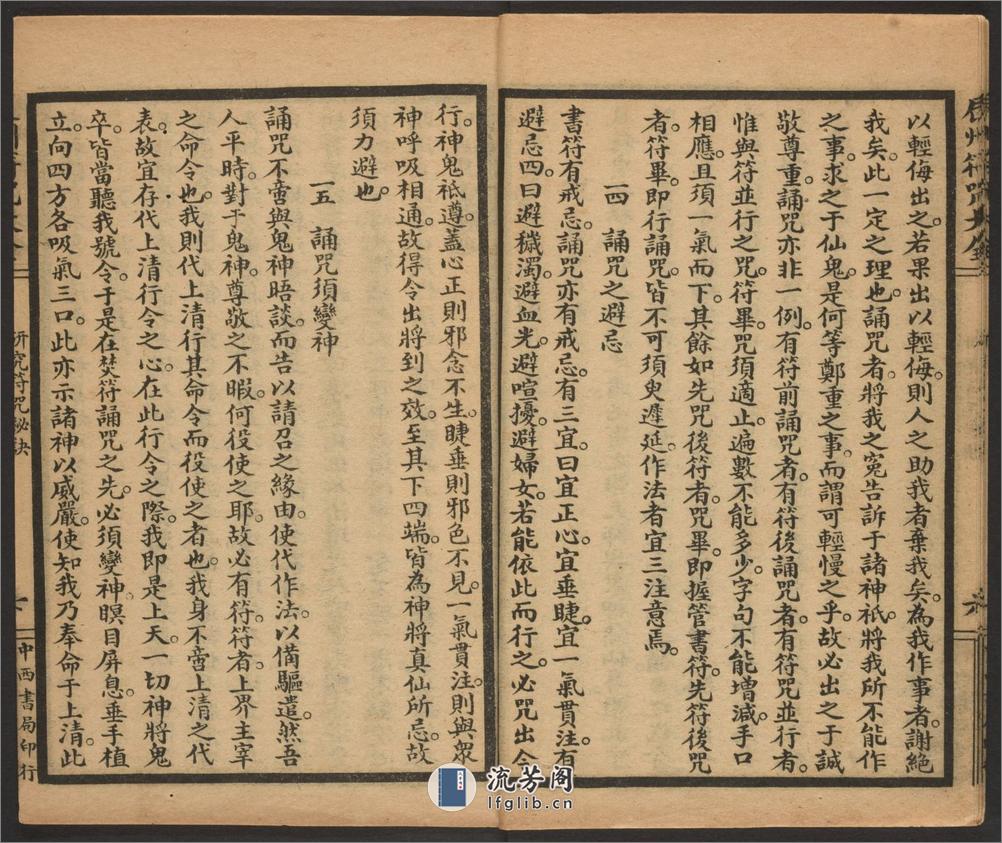 以輕侮出之。若果出以輕侮。則人之助我者棄我矣。為我作事者。謝絕
我矣。此一定之理也。誦咒者。將我之冤告訴于諸神祇。將我所不能作
之事。求之于仙鬼。是何等鄭重之事。而謂可輕慢之乎。故必出之于誠
敬尊重。誦咒亦非一例。有符前誦咒者。有符後誦咒者。有符咒並行者。
惟與符並行之咒。符畢。咒須適止。遍數不能多少。字句不能增減。手口
相應。且須一氣而下。其餘如先咒後符者。咒畢。即握管書符。先符後咒
者。符畢即行誦咒。皆不可須臾遲延。作法者宜三注意焉。
一四 誦咒之避忌
書符有戒忌。誦咒亦有戒忌。有三宜。曰宜正心。宜垂睫。宜一氣貫注。有
避忌四。曰避穢濁。避血光。避喧擾。避婦女。若能依此而行之。必咒出令
行。神鬼祗遵。蓋心正則邪念不生。睫垂則邪色不見。一氣貫注。則與眾
神呼吸相通。故得令出將到之效。至其下四端。皆為神將真仙所忌。故
須力避也。
一五 誦咒須變神
誦咒不啻與鬼神晤談。而告以請召之緣由。使代作法。以備驅遣。然吾
人平時。對于鬼神。尊敬之不暇。何役使之耶。故必有符。符者。上界主宰
之命令也。我則代上清行其命令而役使之者也。我身不啻上清之代
表。故宜存代上清行令之心。在此行令之際。我即是上天。一切神將鬼
卒。皆當聽我號令。于是在焚符誦咒之先。必須變神。瞑目屏息。垂手植
立。向四方各吸氣三口。此亦示諸神以威嚴。使知我乃奉命于上清。此
研究符咒秘訣
中西書局印行
流芳阁
lfglib.cn